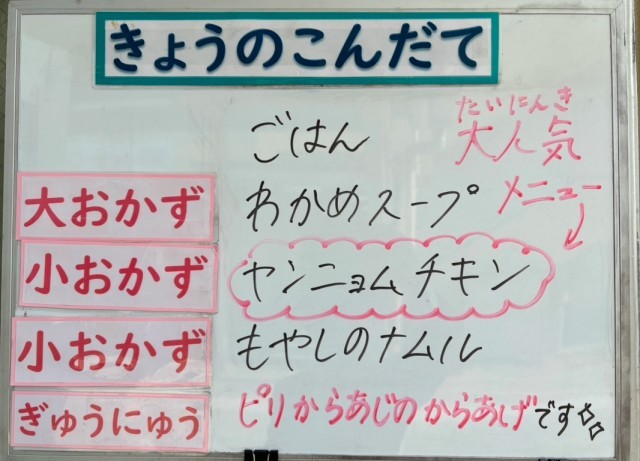 きょうのこんだて
ごはん
たいにんき
大人気
メニュー
大おかず わかめスープ
小おかず ヤンニョムチキン
小おかず もやしのナムル
ぎゅうにゅう
ピリからあじのからあげです